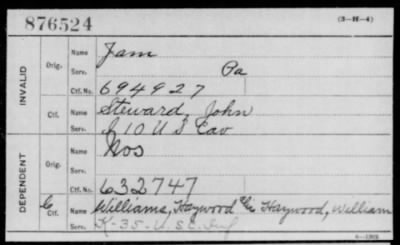 876524 (3-H-4)
INVALID Orig. Name Jam
Serv. Pa
Ctf. No. 694927
Ctf. Name Steward, John
Serv. I 10 U S Cav
DEPENDENT Orig. Name Mos
Serv.
Ctf. No. 632747
C Ctf. Name Williams, Haywood alias Haywood, William
Serv. K-35-U.S.C. Inf
6-1902